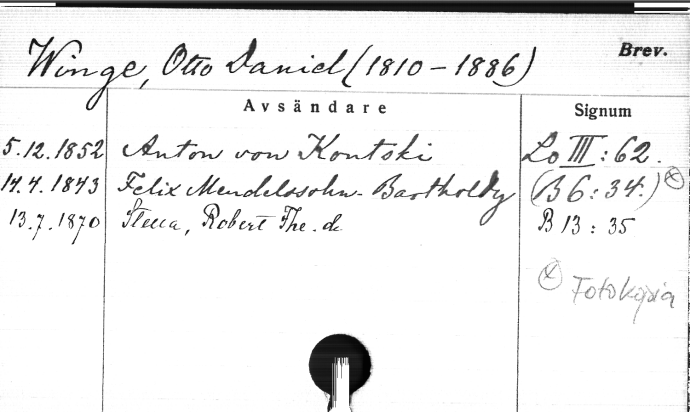 Winge, Otto Daniel (1810-1886) Brev.
Avsändare Signum
5.12.1852 Anton von Kontski Lo III: 62.
14.4.1843 Felix Mendelssohn-Bartholdy (B6: 34.) x
13.7.1870 Robert The. de B 13: 35
x Fotokopia